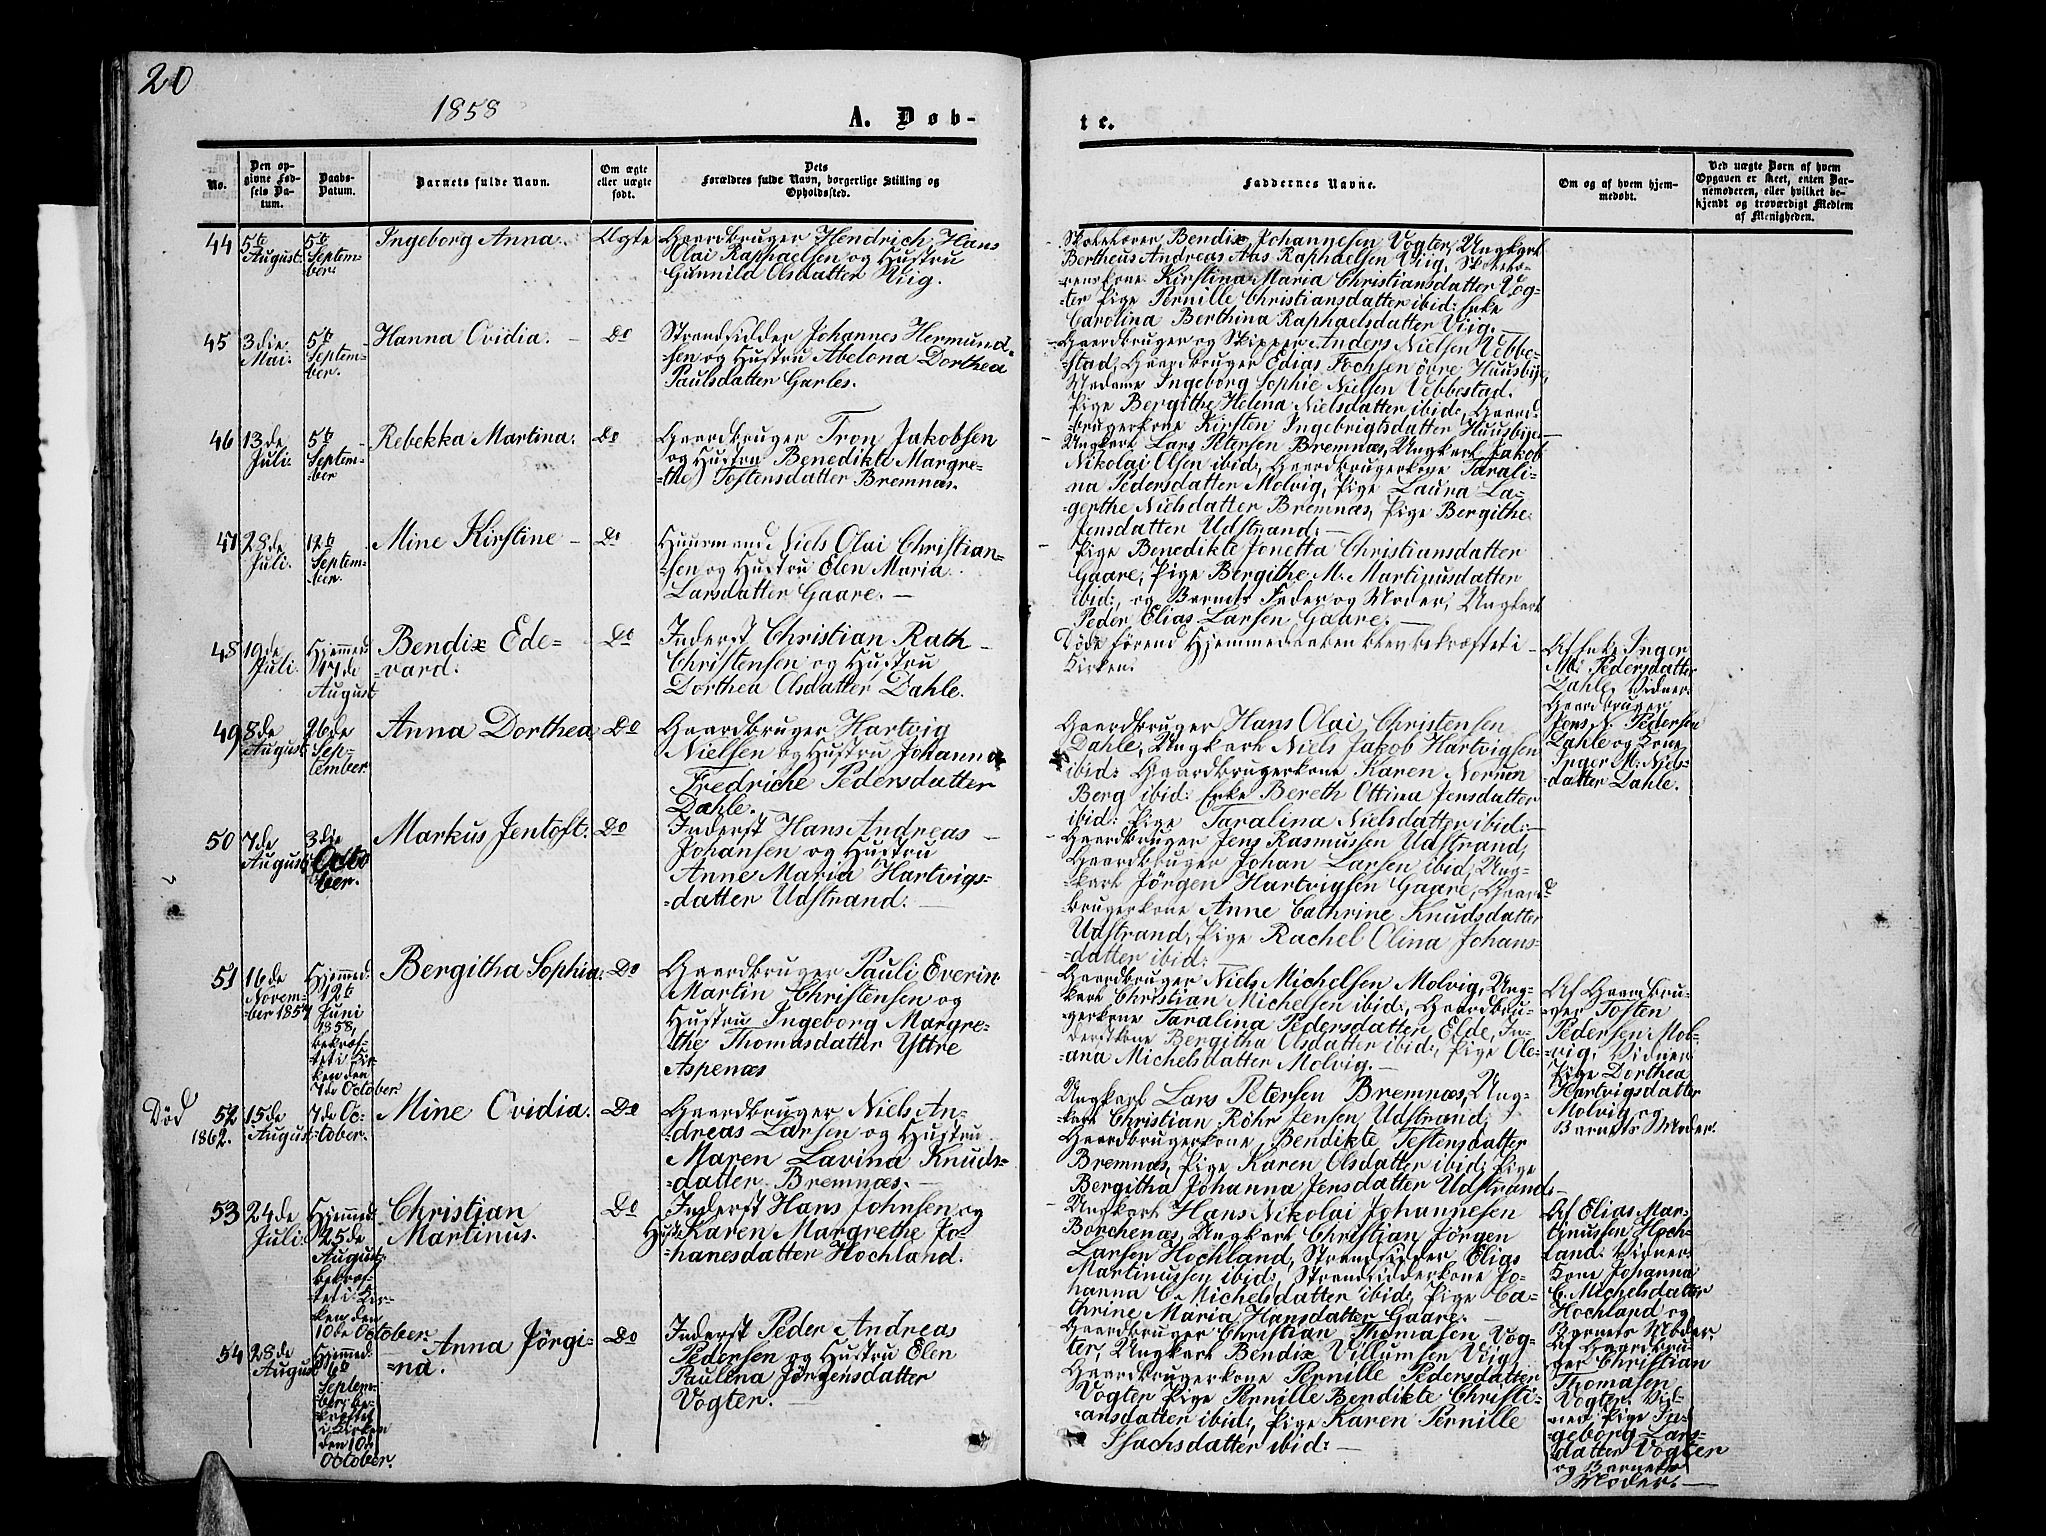 20
1858
A. Døb-
te.
No.
Den op-
givne Fød-
sels Da-
tum.
Daabs-
Datum.
Barnets fulde Navn.
Om ægte
eller uægte
født.
Dets
Forældres fulde Navn, borgerlige Stilling og
Opholdssted.
Faddernes Navne.
Om og af hvem hjem-
medøbt.
Ved uægte Børn af hvem
Opgaven er skeet, enten Bar-
nemoderen, eller hvilket be-
kjendt og troværdigt Medlem
af Menigheden.
44
5te
August.
5te
Septem-
ber.
Ingeborg Anna.
Ægte
Gaardbruger Hendrich Hans
Olai Raphaelsen og Hustru
Gunnild Olsdatter Viig.
Skolelærer Bendix Johannesen Vogter, Ungkarl
Bertheus Andreas Aas Raphaelsen Viig, Skolelæ-
-renskone Kirstina Maria Christiansdatter Vog-
-ter Pige Pernille Christiansdatter ibid: Enke
Carolina Berthina Raphaelsdatter Viig.
45
3die
Mai.
5te
Septem-
ber.
Hanna Ovidia.
Do
Strandsidder Johannes Hermund-
sen og Hustru Abelona Dorthea
Paulsdatter Garles.
Gaardbruger og Skipper Anders Nielsen Vebbe-
-stad, Gaardbruger Edias Fochsen øvre Huusbye,
Madame Ingeborg Sophie Nielsen Vebbestad.
Pige Bergithe Helena Nielsdatter ibid; Gaard-
brugerkone Kirsten Ingebrigtsdatter Huusbye
46
13de
Juli.
5te
Septem-
-ber
Rebekka Martina.
Do
Gaardbruger Tron Jakobsen
og Hustru Benedikte Margre-
-the Tostensdatter Bremnæs.
Ungkarl Lars Petersen Bremnæs, Ungkarl Jakob
Nikolai Olsen ibid; Gaardbrugerkone Tarali-
na Pedersdatter Molvig, Pige Laura La-
gerthe Nielsdatter Bremnæs, Pige Bergithe
Jensdatter Udstrand.
47
28de
Juli.
12te
Septem-
ber.
Mine Kirstine
Do
Huusmand Niels Olai Christian-
-sen og Hustru Elen Maria
Larsdatter Gaare.
Pige Benedikte Jonetta Christiansdatter
Gaare, Pige Bergithe M. Martinusdatter
ibid:, og Barnets Fader og Moder, Ungkarl
Peder Elias Larsen Gaare.
48
19de
Juli.
Hjemmed
17de
August
Bendix Ede-
-vard.
Do
Inderst Christian Rath
Christensen og Hustru
Dorthea Olsdatter Dahle.
Døde førend Hjemmedaaben blev bekræftet i
Kirken.
Af Enke Inger
M. Pedersdatter
Dahle. Vidner
Gaardbruger
Jens N. Pedersen
Dahle og Kone
Inger M. Niels-
datter Dahle.
49
8de
August
26de
Sep-
tember.
Anna Dorthea.
Do
Gaardbruger Hartvig
Nielsen og Hustru Johanna
Fredriche Pedersdatter
Dahle.
Gaardbruger Hans Olai Christensen
Dahle, Ungkarl Niels Jakob Hartvigsen
ibid: Gaardbrugerkone Karen Norum
Berg ibid: Enke Bereth Ottina Jensdatter
ibid: Pige Taralina Nielsdatter ibid:
50
7de
August
3die
Octo
ber.
Markus Jentoft.
Do
Inderst Hans Andreas
Johansen og Hustru
Anne Maria Hartvigs-
-datter Udstrand.
Gaardbruger Jens Rasmussen Udstrand,
Gaardbruger Johan Larsen ibid, Ung-
karl Jørgen Hartvigsen Gaare, Gaard-
brugerkone Anne Cathrine Knudsdatter
Udstrand, Pige Rachel Olina Johans-
datter ibid:
51
16de
Novem-
-ber 1857
Hjemmed.
12te
Juni
1858,
bekræf-
tet i Kir-
ken den
7de October.
Bergitha Sophia.
Do
Gaardbruger Pauli Everin
Martin Christensen og
Hustru Ingeborg Margre-
the Thomasdatter Yttre
Aspenæs
Gaardbruger Niels Michelsen Molvig, Ung-
karl Christian Michelsen ibid:, Gaardbru-
gerkone Taralina Pedersdatter Elde, In-
derstkone Bergitha Olsdatter ibid:, Pige Ole-
ana Michelsdatter Molvig.
Af Gaardbru-
ger Tosten
Pedersen Mol-
-vig, Vidner
Pige Dorthea
Hartvigsdatter
Molvig og
Barnets Moder.
Død
1862.
52
15de
August
7de Oc-
-tober.
Mine Ovidia.
Do
Gaardbruger Niels An-
-dreas Larsen og Hustru
Maren Lavina Knuds-
-datter Bremnæs.
Ungkarl Lars Petersen Bremnæs, Ung-
karl Christian Röhr Jensen Udstrand,
Gaardbrugerkone Bendikte Testensdatter
Bremnæs, Pige Karen Olsdatter ibid; Pige
Bergitha Johanna Jensdatter Udstrand.
53
24de
Juli.
Hjemmed
25de
August
bekræf-
-tet i Kir-
ken den
10de October.
Christian
Martinus.
Do
Inderst Hans Johnsen og
Hust: Karen Margrethe Jo-
-hanesdatter Hochland.
Ungkarl Hans Nikolai Johannesen
Borchenæs, Ungkarl Christian Jörgen
Larsen Hochland, Strandsidder Elias
Martinussen ibid:, Strandsidderkone Jo-
hanna C. Michelsdatter ibid:, Pige Ca-
thrine Maria Hansdatter Gaare.
Af Elias Mar-
tinussen Hoch-
land. Vidner
Kone Johanna
C. Michelsdatter
Hochland og
Barnets Moder.
54
28de
August
Hjemmed.
6te
Septem-
ber, be-
kræftet
i Kirken
den 10de
October.
Anna Jörgi-
-na.
Do
Inderst Peder Andreas
Pedersen og Hustru Elen
Paulina Jörgensdatter
Vogter.
Gaardbruger Christian Thomasen Vog-
ter, Ungkarl Bendix Villumsen Viig,
Gaardbrugerkone Pernille Pedersdatter
Vogter Pige Pernille Bendikte Christi-
-ansdatter ibid; Pige Karen Pernille
Isachsdatter ibid:
Af Gaardbru-
ger Christian
Thomasen
Vogter. Vid-
ner Pige In-
geborg Lars-
datter Vogter
og Barnets
Moder.